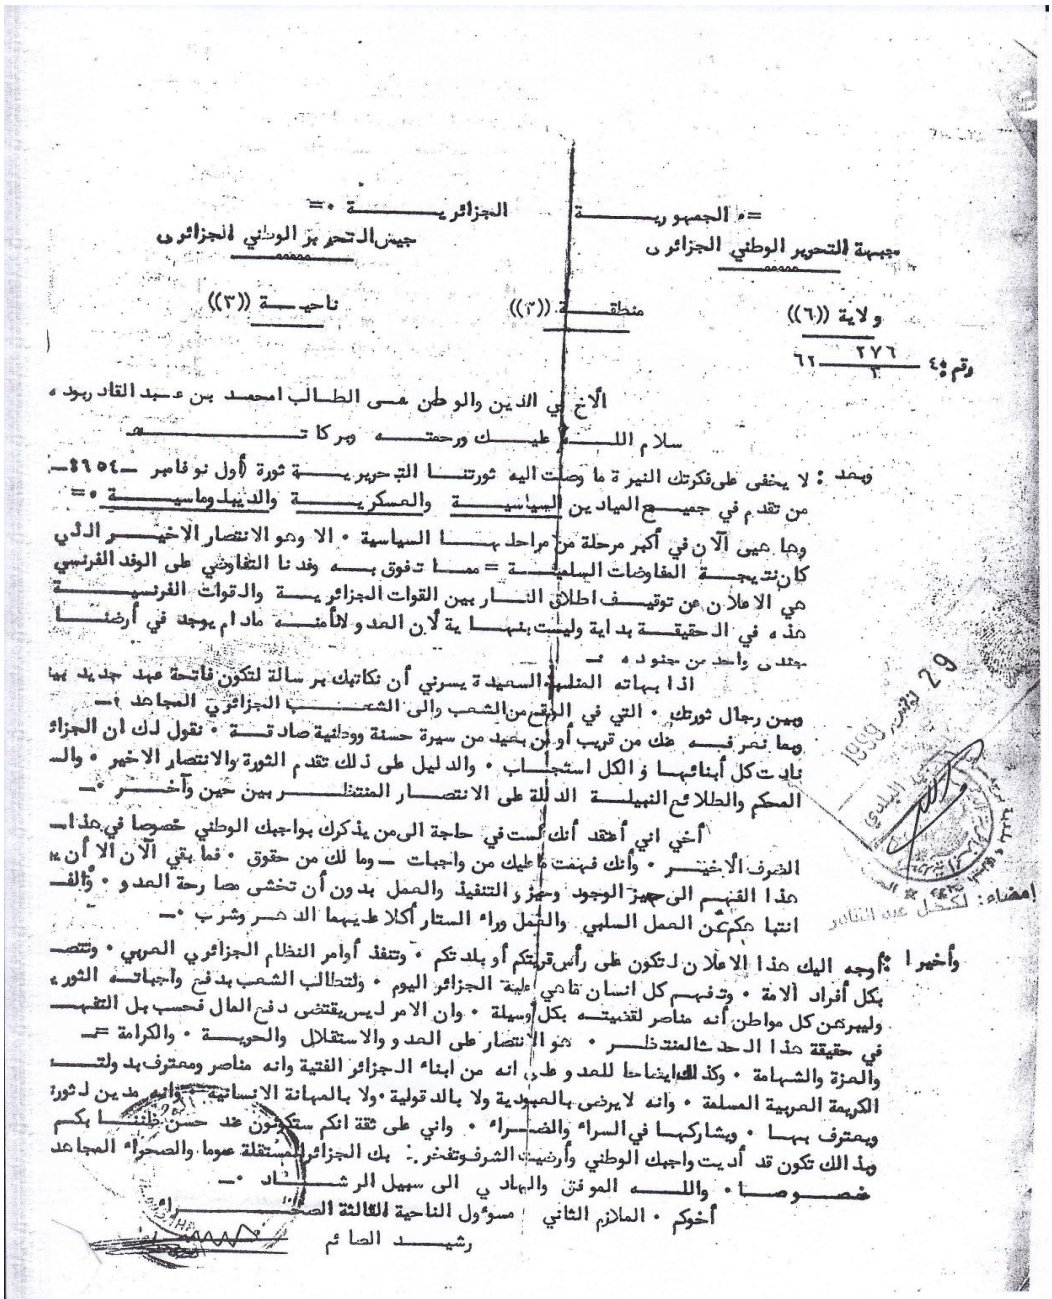 =٠ الجمهوريـــــــة الجزائريـــــــة ٠=
جبهة التحرير الوطني الجزائرى جيش التحرير الوطني الجزائرى
ولاية ((٦)) منطقـــة ((٣)) ناحيـــة ((٣))
رقم: ٤ ٢٧٦ ٦٢
٣
الأخ في الدين والوطن سى الطالب امحمد بن عبد القادر بوده ٠
سلام اللـــه عليـــك ورحمتـــه وبركاتـــــه
وبعد : لا يخفى على فكرتك النيرة ما وصلت اليه ثورتنـــا التحريريـــة ثورة أول نوفامبر
من تقدم في جميـــع الميادين السياسيـــة والعسكريـــة والديبلوماسيـــة ٠=
وها هيى الآن في أكبر مرحلة من مراحلهـــا السياسية ٠ الا وهو الانتصار الاخيـــر الذي
كان نتيجـــة المفاوضات السلميـــة = ممـــا تفوق بـــه وفدنا التفاوضي على الوفد الفرنسي
هي الاعلان عن توقيـــف اطلاق النـــار بين القوات الجزائريـــة والقوات الفرنسيـــة
هذه في الحقيقـــة بداية وليست بنهاية لأن العدو لانأمنـــه مادام يوجد في أرضنـــا
جندى واحد من جنوده ٠ــ
اذا بهاته المناسبة السعيدة يسرني أن نكاتبك برسالة لتكون فاتحة عهد جديد
وبين رجال ثورتك ٠ التي في الواقع من الشعب والى الشعـــب الجزائري المجاهد ٠ــ
وبما نعرفـــه عنك من قريب أو من بعيد من سيرة حسنة ووطنية صادقـــة ٠ نقول لك ان الجزائر
نادت كل أبنائهـــا و الكل استجـــاب ٠ والدليل على ذلك تقدم الثورة والانتصار الاخير ٠
المحكم والطلائع النبيلـــة الدالة على الانتصـــار المنتظـــر بين حين وآخـــر ٠ــ
أخي اني أعتقد أنك لست في حاجة الى من يذكرك بواجبك الوطني خصوصا في هذا
الضرف الأخيـــر ٠ وأنك فهمت ما عليك من واجبات ــ وما لك من حقوق ٠ فما بقي الآن الا أن
هذا الفهم الى حيز الوجود وحيز التنفيذ والعمل بدون أن تخشى مصارحة العدو ٠
انتباهكم عن العمل السلبي والعمل وراء الستار أكلا عليهما الدهـــر وشرب ٠ــ
وأخيرا : أوجه اليك هذا الاعلان لتكون على رأس قريتكم أو بلدتكم ٠ وتنفذ أوامر النظام الجزائري العربي ٠
بكل أفراد الامة ٠ وتفهـــم كل انسان ما هي عليه الجزائر اليوم ٠ ولتطالب الشعب بدفع واجباتـــه
وليبرهن كل مواطن أنه مناصر لقضيتـــه بكل وسيلة ٠ وان الامر ليس يقتضى دفع المال فحسب بل
في حقيقة هذا الحدث المنتظـــر ٠ هو الانتصار على العدو والاستقلال والحريـــة ٠ والكرامة =ــ
والعزة والشهامة ٠ وكذلك ايضاحا للعدو على انه من ابناء الجزائر الفتية وانه مناصر ومعترف
الكريمة العربية المسلمة ٠ وانه لا يرضى بالعبودية ولا ٠ ولا بالمهانة الانسانية ٠ وانه مدين لثورة
ويعترف بهـــا ٠ ويشاركهـــا في السراء والضـــراء ٠ واني على ثقة انكم ستكونون عند حسن ظننـــا بكم
وبذالك تكون قد أديت واجبك الوطني وأرضيت الشرف وتفخر بك الجزائر المستقلة عموما والصحراء المجاهد
خصـــوصـــا ٠ واللـــه الموفق والهادي الى سبيل الرشـــاد ٠ــ
أخوكم ٠ الملازم الثاني مسؤول الناحية الثالثة الصحـــراء
رشيـــد الصائم
29 نوفمبر 1999
البلدي
إمضاء: لكحل عبد القادر